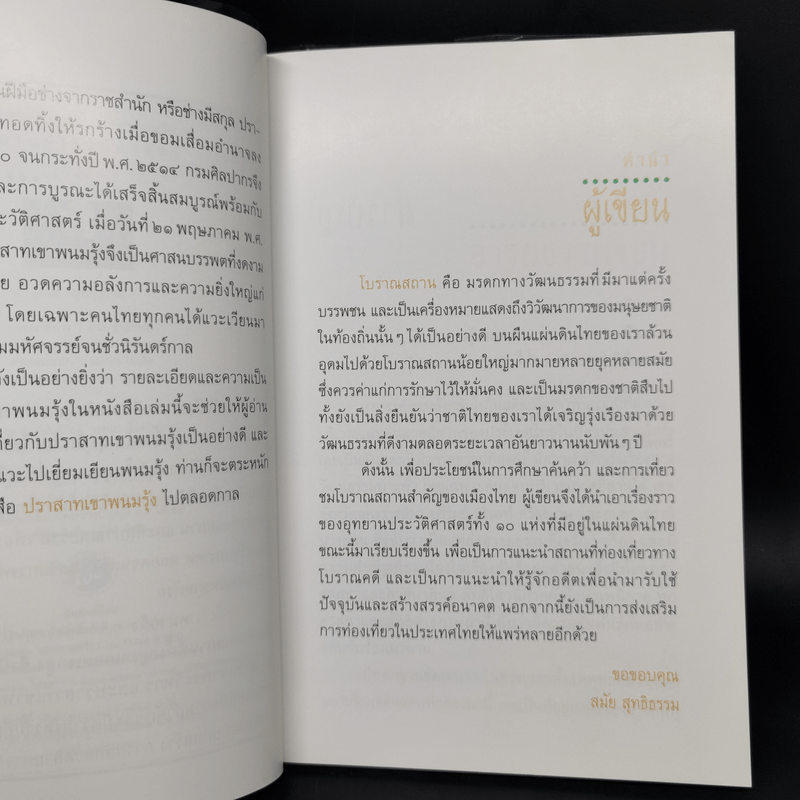 นฝีมือช่างจากราชสำนัก หรือช่างมีสกุล ปรา-
ทอดทิ้งให้รกร้างเมื่อขอมเสื่อมอำนาจลง
๐ จนกระทั่งปี พ.ศ. ๒๕๑๔ กรมศิลปากรจึง
ละการบูรณะได้เสร็จสิ้นสมบูรณ์พร้อมกับ
ะวัติศาสตร์ เมื่อวันที่ ๒๑ พฤษภาคม พ.ศ.
สาทเขาพนมรุ้งจึงเป็นศาสนบรรพตที่งดงาม
ย อวดความอลังการและความยิ่งใหญ่แก่
โดยเฉพาะคนไทยทุกคนได้แวะเวียนมา
มมหัศจรรย์จนชั่วนิรันดร์กาล
ังเป็นอย่างยิ่งว่า รายละเอียดและความเป็น
าพนมรุ้งในหนังสือเล่มนี้จะช่วยให้ผู้อ่าน
กี่ยวกับปราสาทเขาพนมรุ้งเป็นอย่างดี และ
แวะไปเยี่ยมเยียนพนมรุ้ง ท่านก็จะตระหนัก
สือ ปราสาทเขาพนมรุ้ง ไปตลอดกาล
คำนำ
ผู้เขียน
โบราณสถาน คือ มรดกทางวัฒนธรรมที่มีมาแต่ครั้ง
บรรพชน และเป็นเครื่องหมายแสดงถึงวิวัฒนาการของมนุษยชาติ
ในท้องถิ่นนั้น ๆ ได้เป็นอย่างดี บนผืนแผ่นดินไทยของเราล้วน
อุดมไปด้วยโบราณสถานน้อยใหญ่มากมายหลายยุคหลายสมัย
ซึ่งควรค่าแก่การรักษาไว้ให้มั่นคง และเป็นมรดกของชาติสืบไป
ทั้งยังเป็นสิ่งยืนยันว่าชาติไทยของเราได้เจริญรุ่งเรืองมาด้วย
วัฒนธรรมที่ดีงามตลอดระยะเวลาอันยาวนานนับพัน ๆ ปี
ดังนั้น เพื่อประโยชน์ในการศึกษาค้นคว้า และการเที่ยว
ชมโบราณสถานสำคัญของเมืองไทย ผู้เขียนจึงได้นำเอาเรื่องราว
ของอุทยานประวัติศาสตร์ทั้ง ๑๐ แห่งที่มีอยู่ในแผ่นดินไทย
ขณะนี้มาเรียบเรียงขึ้น เพื่อเป็นการแนะนำสถานที่ท่องเที่ยวทาง
โบราณคดี และเป็นการแนะนำให้รู้จักอดีตเพื่อนำมารับใช้
ปัจจุบันและสร้างสรรค์อนาคต นอกจากนี้ยังเป็นการส่งเสริม
การท่องเที่ยวในประเทศไทยให้แพร่หลายอีกด้วย
ขอขอบคุณ
สมัย สุทธิธรรม